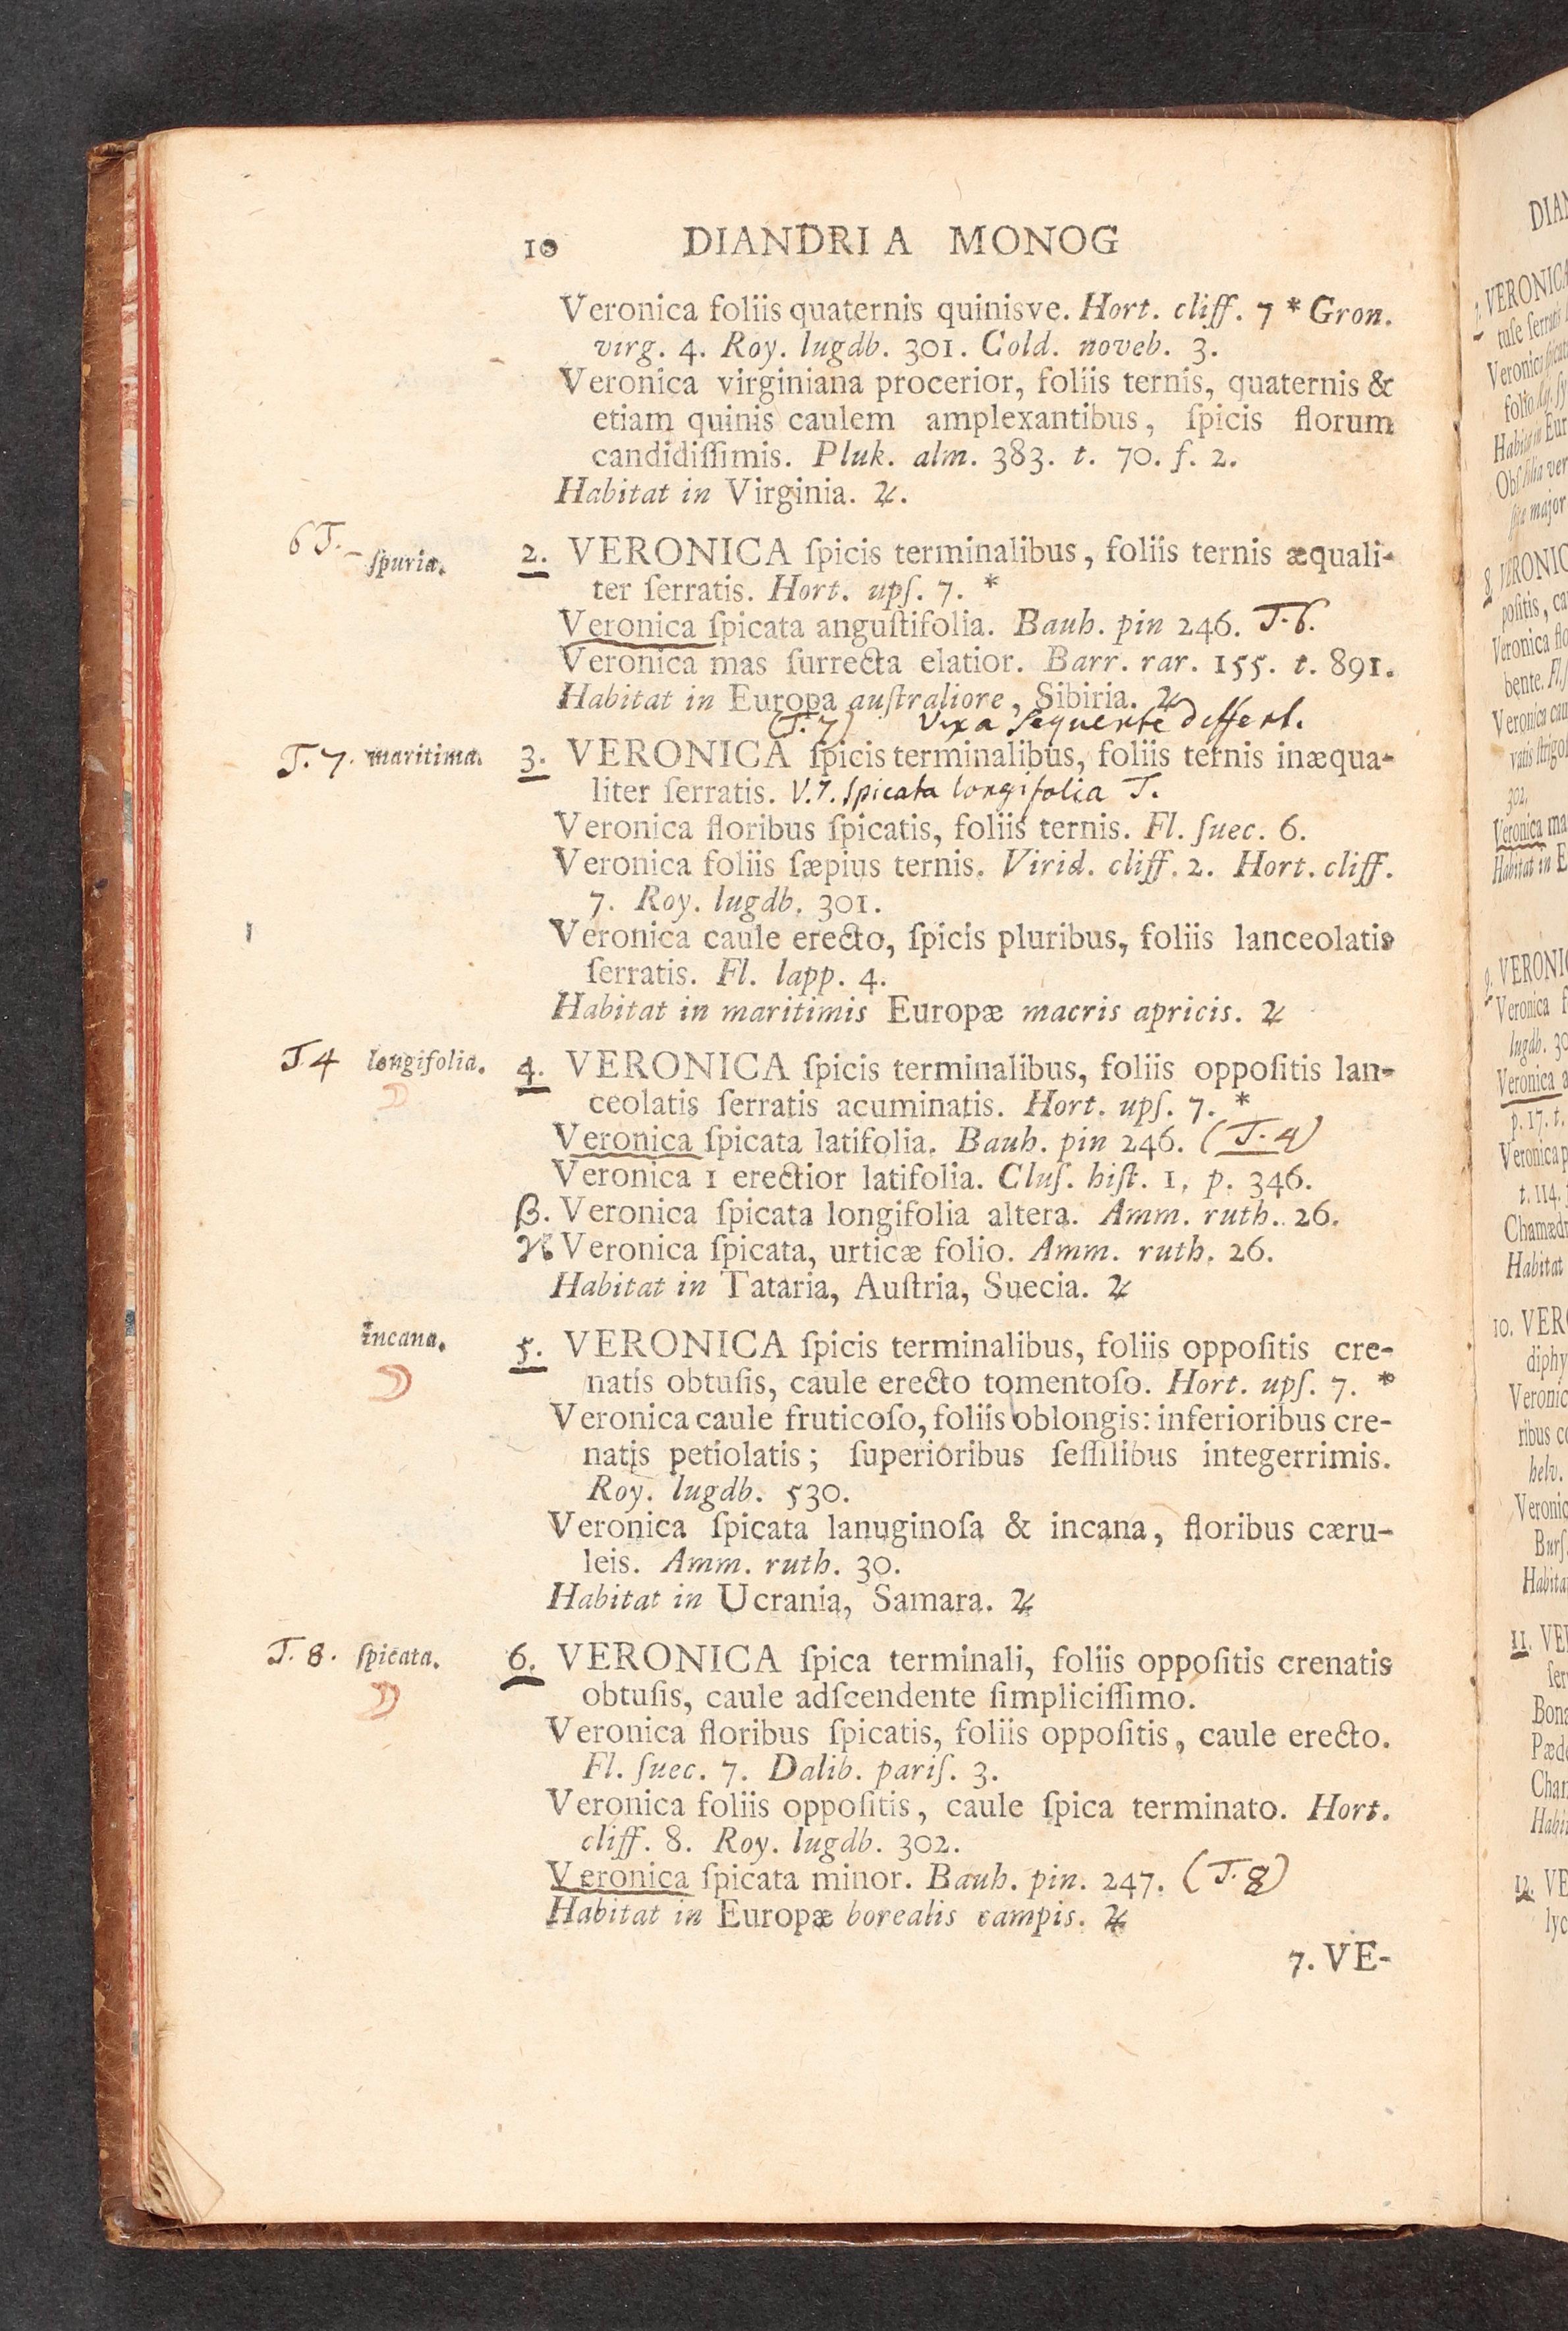 10 DIANDRIA MONOG
Veronica foliis quaternis quinisve. Hort. cliff. 7 * Gron.
virg. 4. Roy. lugdb. 301. Cold. noveb. 3.
Veronica virginiana procerior, foliis ternis, quaternis &
etiam quinis caulem amplexantibus, ſpicis florum
candidiſſimis. Pluk. alm. 383. t. 70. f. 2.
Habitat in Virginia. ♃.
6 T. ſpuria. 2. VERONICA ſpicis terminalibus, foliis ternis æquali-
ter ſerratis. Hort. upſ. 7. *
Veronica ſpicata anguſtifolia. Bauh. pin 246. T. 6.
Veronica mas ſurrecta elatior. Barr. rar. 155. t. 891.
Habitat in Europa auſtraliore, Sibiria. ♃
(T. 7) Vix a sequente differt.
T. 7. maritima. 3. VERONICA ſpicis terminalibus, foliis ternis inæqua-
liter ſerratis. V. 7. spicata longifolia T.
Veronica floribus ſpicatis, foliis ternis. Fl. ſuec. 6.
Veronica foliis ſæpius ternis. Virid. cliff. 2. Hort. cliff.
7. Roy. lugdb. 301.
Veronica caule erecto, ſpicis pluribus, foliis lanceolatis
ſerratis. Fl. lapp. 4.
Habitat in maritimis Europæ macris apricis. ♃
T. 4 longifolia. 4. VERONICA ſpicis terminalibus, foliis oppoſitis lan-
ceolatis ſerratis acuminatis. Hort. upſ. 7. *
Veronica ſpicata latifolia. Bauh. pin 246. (T. 4)
Veronica 1 erectior latifolia. Cluſ. hiſt. 1, p. 346.
β. Veronica ſpicata longifolia altera. Amm. ruth. 26.
Veronica ſpicata, urticæ folio. Amm. ruth. 26.
Habitat in Tataria, Auſtria, Suecia. ♃
incana. 5. VERONICA ſpicis terminalibus, foliis oppoſitis cre-
natis obtuſis, caule erecto tomentoſo. Hort. upſ. 7. *
Veronica caule fruticoſo, foliis oblongis: inferioribus cre-
natis petiolatis; ſuperioribus ſeſſilibus integerrimis.
Roy. lugdb. 530.
Veronica ſpicata lanuginoſa & incana, floribus cæru-
leis. Amm. ruth. 30.
Habitat in Ucrania, Samara. ♃
T. 8. ſpicata. 6. VERONICA ſpica terminali, foliis oppoſitis crenatis
obtuſis, caule adſcendente ſimpliciſſimo.
Veronica floribus ſpicatis, foliis oppoſitis, caule erecto.
Fl. ſuec. 7. Dalib. pariſ. 3.
Veronica foliis oppoſitis, caule ſpica terminato. Hort.
cliff. 8. Roy. lugdb. 302.
Veronica ſpicata minor. Bauh. pin. 247. (T. 8)
Habitat in Europæ borealis campis. ♃
7. VE-